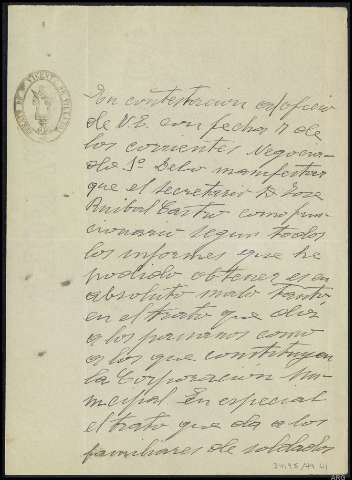 En contestacion as/oficio
de V.E. con fecha 7 de
los corrientes Negocia-
do 1º Debo manifestar
que el secretario D. Jose
Anibal Castro como fun-
cionario segun todos
los informes que he
podido obtener es en
absoluto malo tanto
en el trato que da
a los paisanos como
a los que constituyen
la Corporación Mu-
nicipal En especial
el trato que da a los
familiares de soldados
ARG